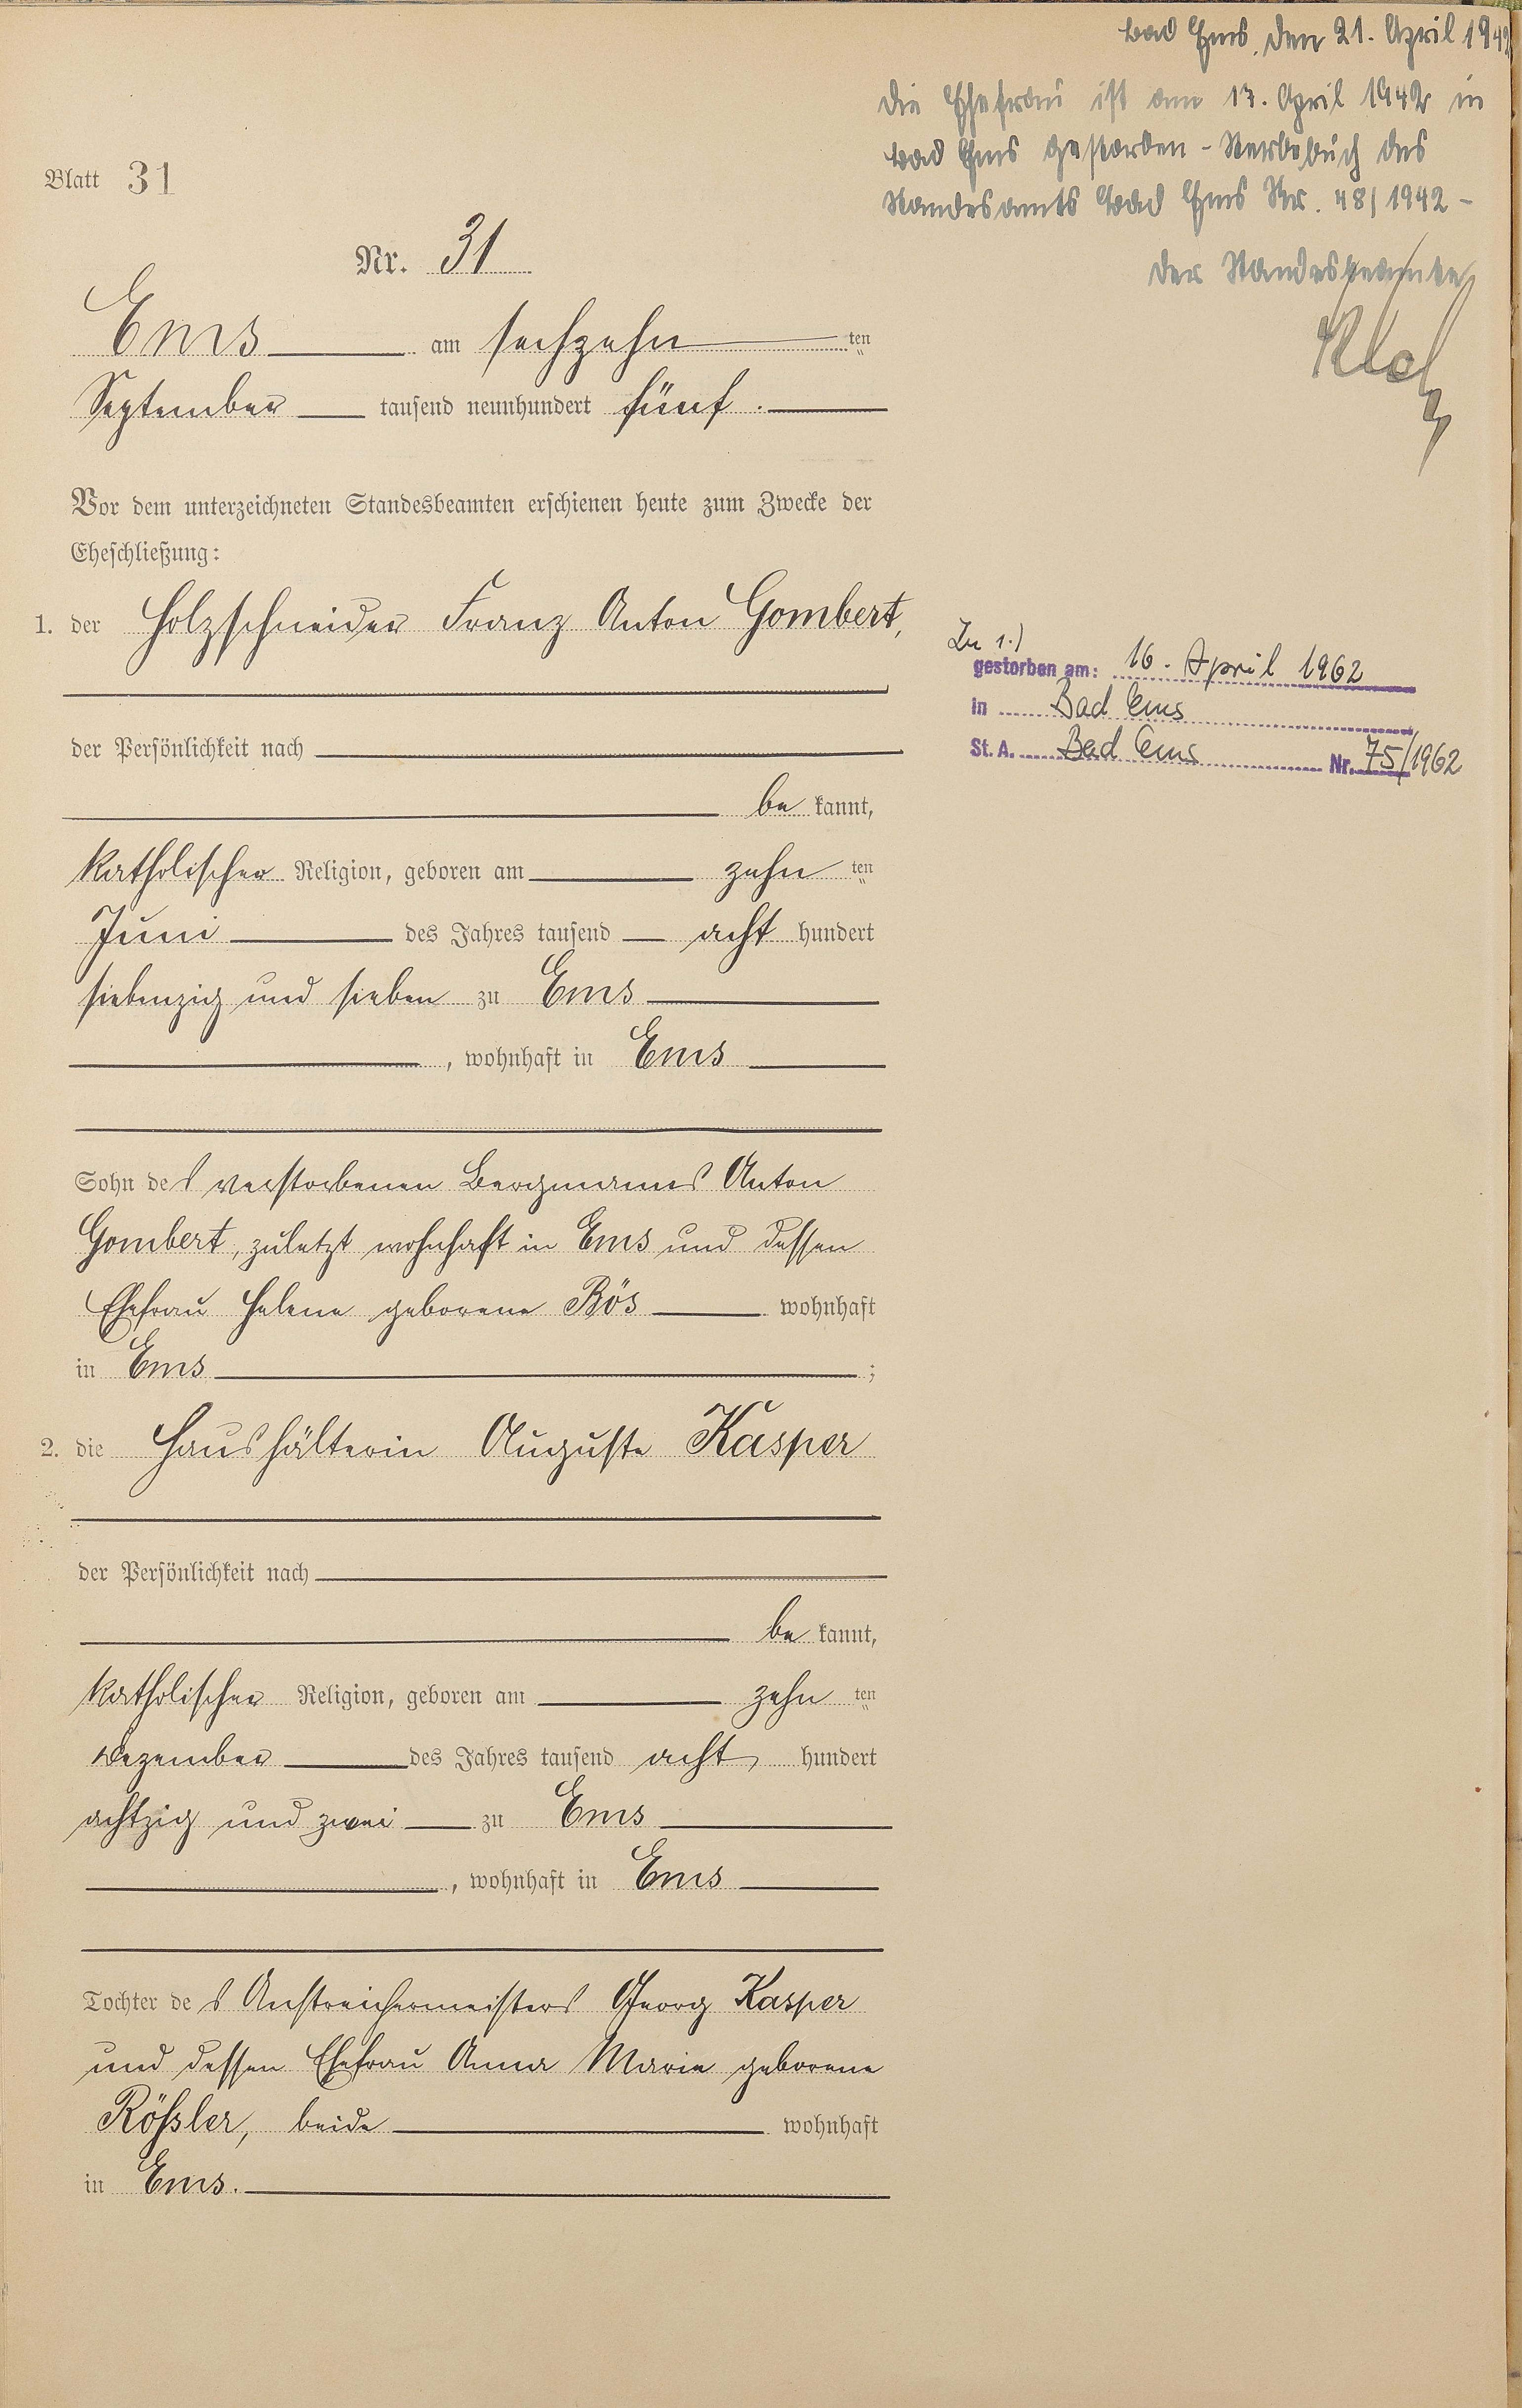 Bad Ems, den 21. April 1942
Die Ehefrau ist am 17. April 1942 in
Bad Ems gestorben - Sterbebuch des
Standesamts Bad Ems Nr. 48/1942 -
Der Standesbeamte
Blatt 31
Nr. 31
Ems am sechzehn ten
September tausend neunhundert fünf.
Vor dem unterzeichneten Standesbeamten erschienen heute zum Zwecke der
Eheschließung:
1. der Holzschneider Franz Anton Gombert,
Zu 1.)
gestorben am: 16. April 1962
in Bad Ems
St. A. Bad Ems Nr. 75/1962
der Persönlichkeit nach
be kannt,
katholischer Religion, geboren am zehn ten
Juni des Jahres tausend acht hundert
siebenzig und sieben zu Ems
, wohnhaft in Ems
Sohn des verstorbenen Bergmannes Anton
Gombert, zuletzt wohnhaft in Ems und dessen
Ehefrau Helene geborene Bös wohnhaft
in Ems ;
2. die Haushälterin Auguste Kasper
der Persönlichkeit nach
be kannt,
katholischer Religion, geboren am zehn ten
Dezember des Jahres tausend acht hundert
achtzig und zwei zu Ems
, wohnhaft in Ems
Tochter des Anstreichermeisters Georg Kasper
und dessen Ehefrau Anna Maria geborene
Rößler, beide wohnhaft
in Ems.